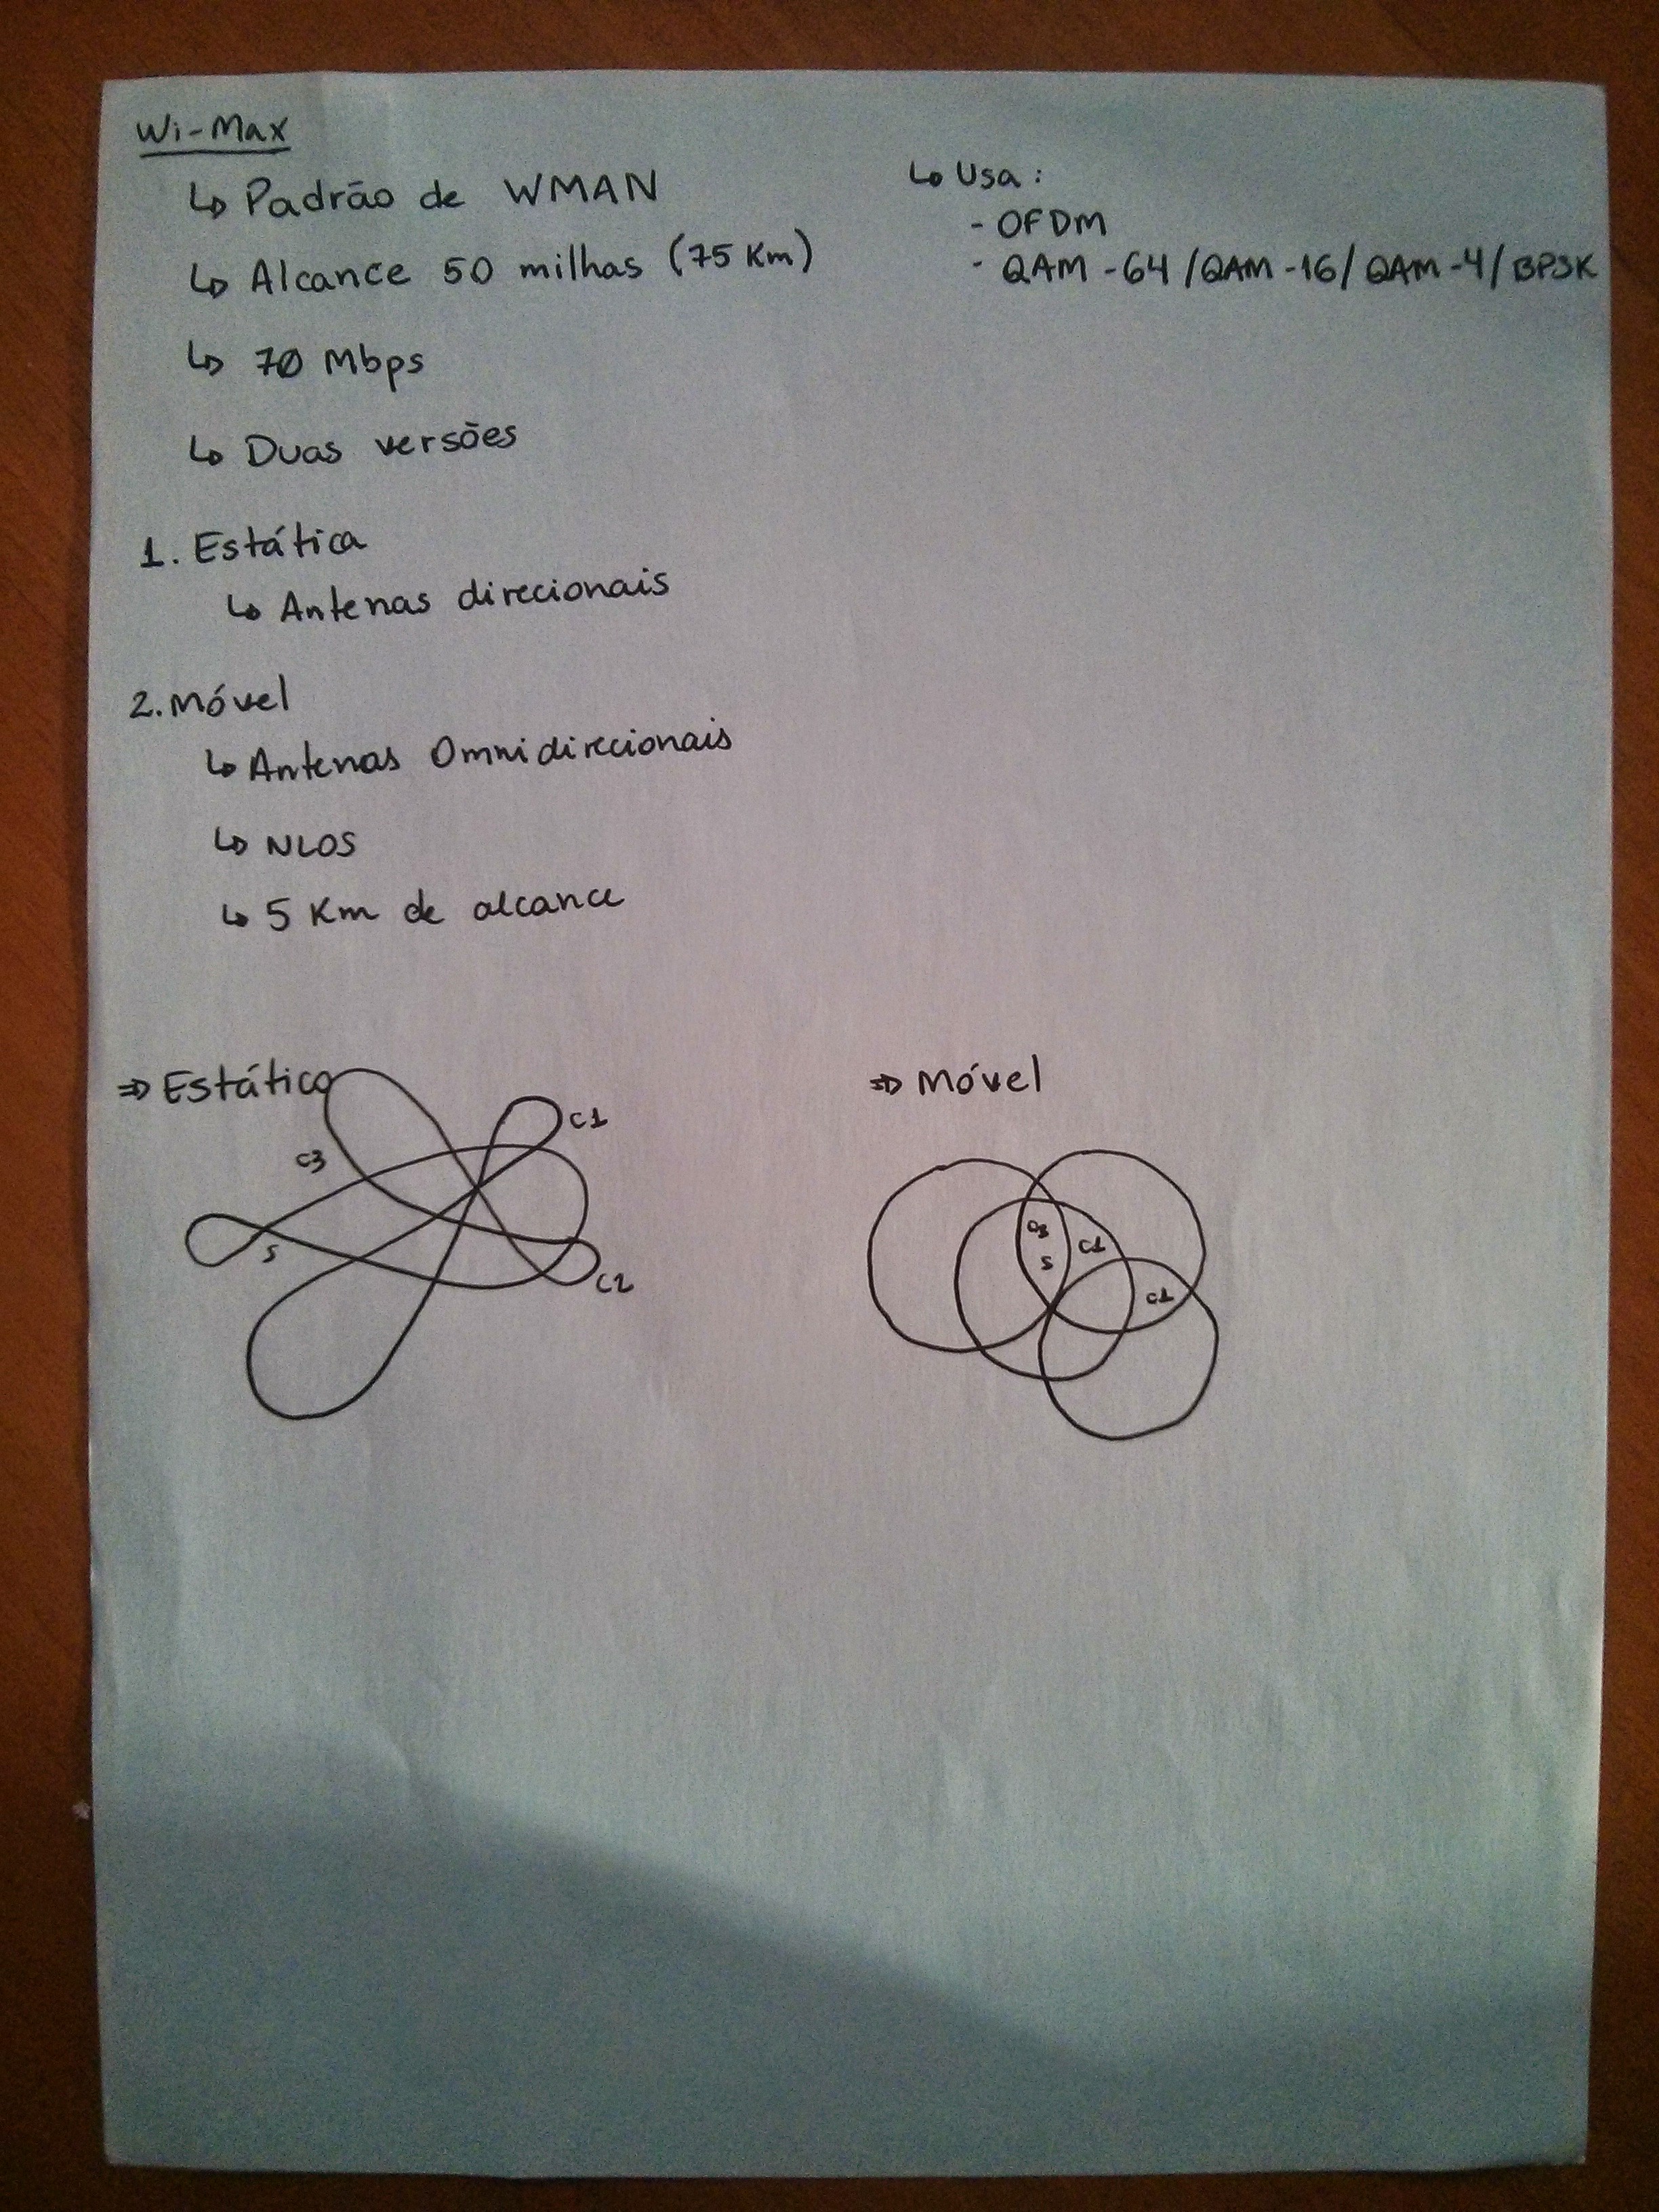 Wi-Max
↳ Padrão de WMAN
↳ Alcance 50 milhas (75 Km)
↳ 70 Mbps
↳ Duas versões
1. Estática
↳ Antenas direcionais
2. Móvel
↳ Antenas Omnidirecionais
↳ NLOS
↳ 5 Km de alcance
↳ Usa:
- OFDM
- QAM -64 /QAM -16/ QAM -4/ BPSK
⇒ Estático
C1
C3
S
C2
⇒ Móvel
C3
C1
S
C1